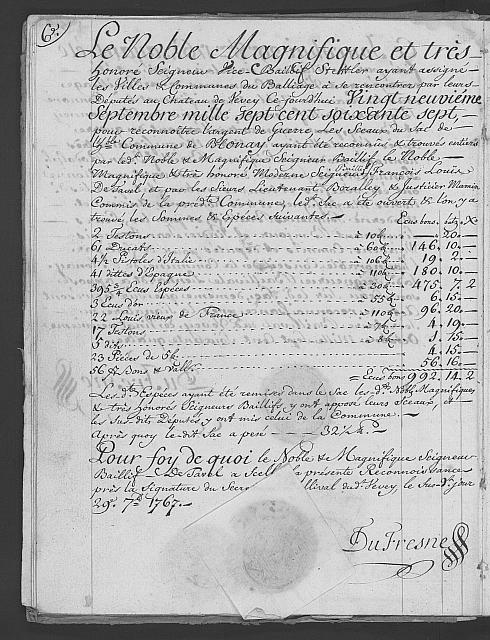 6.
Le Noble Magnifique et très
honoré Seigneur Vice-Baillif Stettler ayant assigné
les Villes & Communes du Balliage à se rencontrer par leurs
Députés au Chateau de Vevey ce jourdhui Vingt neuvieme
Septembre mille Sept cent soixante sept,
pour reconnoître l'argent de Guerre, Les Sceaux du Sac de
Commune de Blonay ayant été reconnûs & trouvés entiers
par led. Noble & Magnifique Seigneur Baillif, le Noble
Magnifique & très honoré Moderne Seigneur Baillif François Louis
De Tavel, et par les Sieurs Lieutenant & Justicier Mamin
Commis de la préd. Commune, led. Sac a été ouvert & lon y a
trouvé les Sommes & Espèces Suivantes.
Ecus bons. btz. X
2 Testons à 10 20.
61 Ducats à 60 146. 10.
4½ Pistoles d'Italie à 106 19. 2.
41 dittes d'Espagne à 110 180. 10.
395 Ecus Espèces à 30 475. 7. 2
3 Ecus d'or à 55 6. 15.
22 Louis vieux de France à 110 96. 20.
17 Testons à 7 4. 19.
5 dits à 8 1. 15.
23 Pièces de 5 4. 15.
56 Bons & Vall. 56. 16.
= Ecus bons 992. 14. 2
Les d. Espèces ayant été remises dans le Sac les d. Nobles Magnifiques
& très honorés Seigneurs Baillifs y ont apposé leurs Sceaux et
les Sus dits Députés y ont mis celui de la Commune.
Après quoy le dit Sac a pesé 32
Pour foy de quoi le Noble & Magnifique Seigneur
Baillif De Tavel a Scellé la présente Reconnoissance
près la Signature du Secr. Ballival dud. Vevey le Sus d. jour
29e. 7bre 1767.
DuFresne